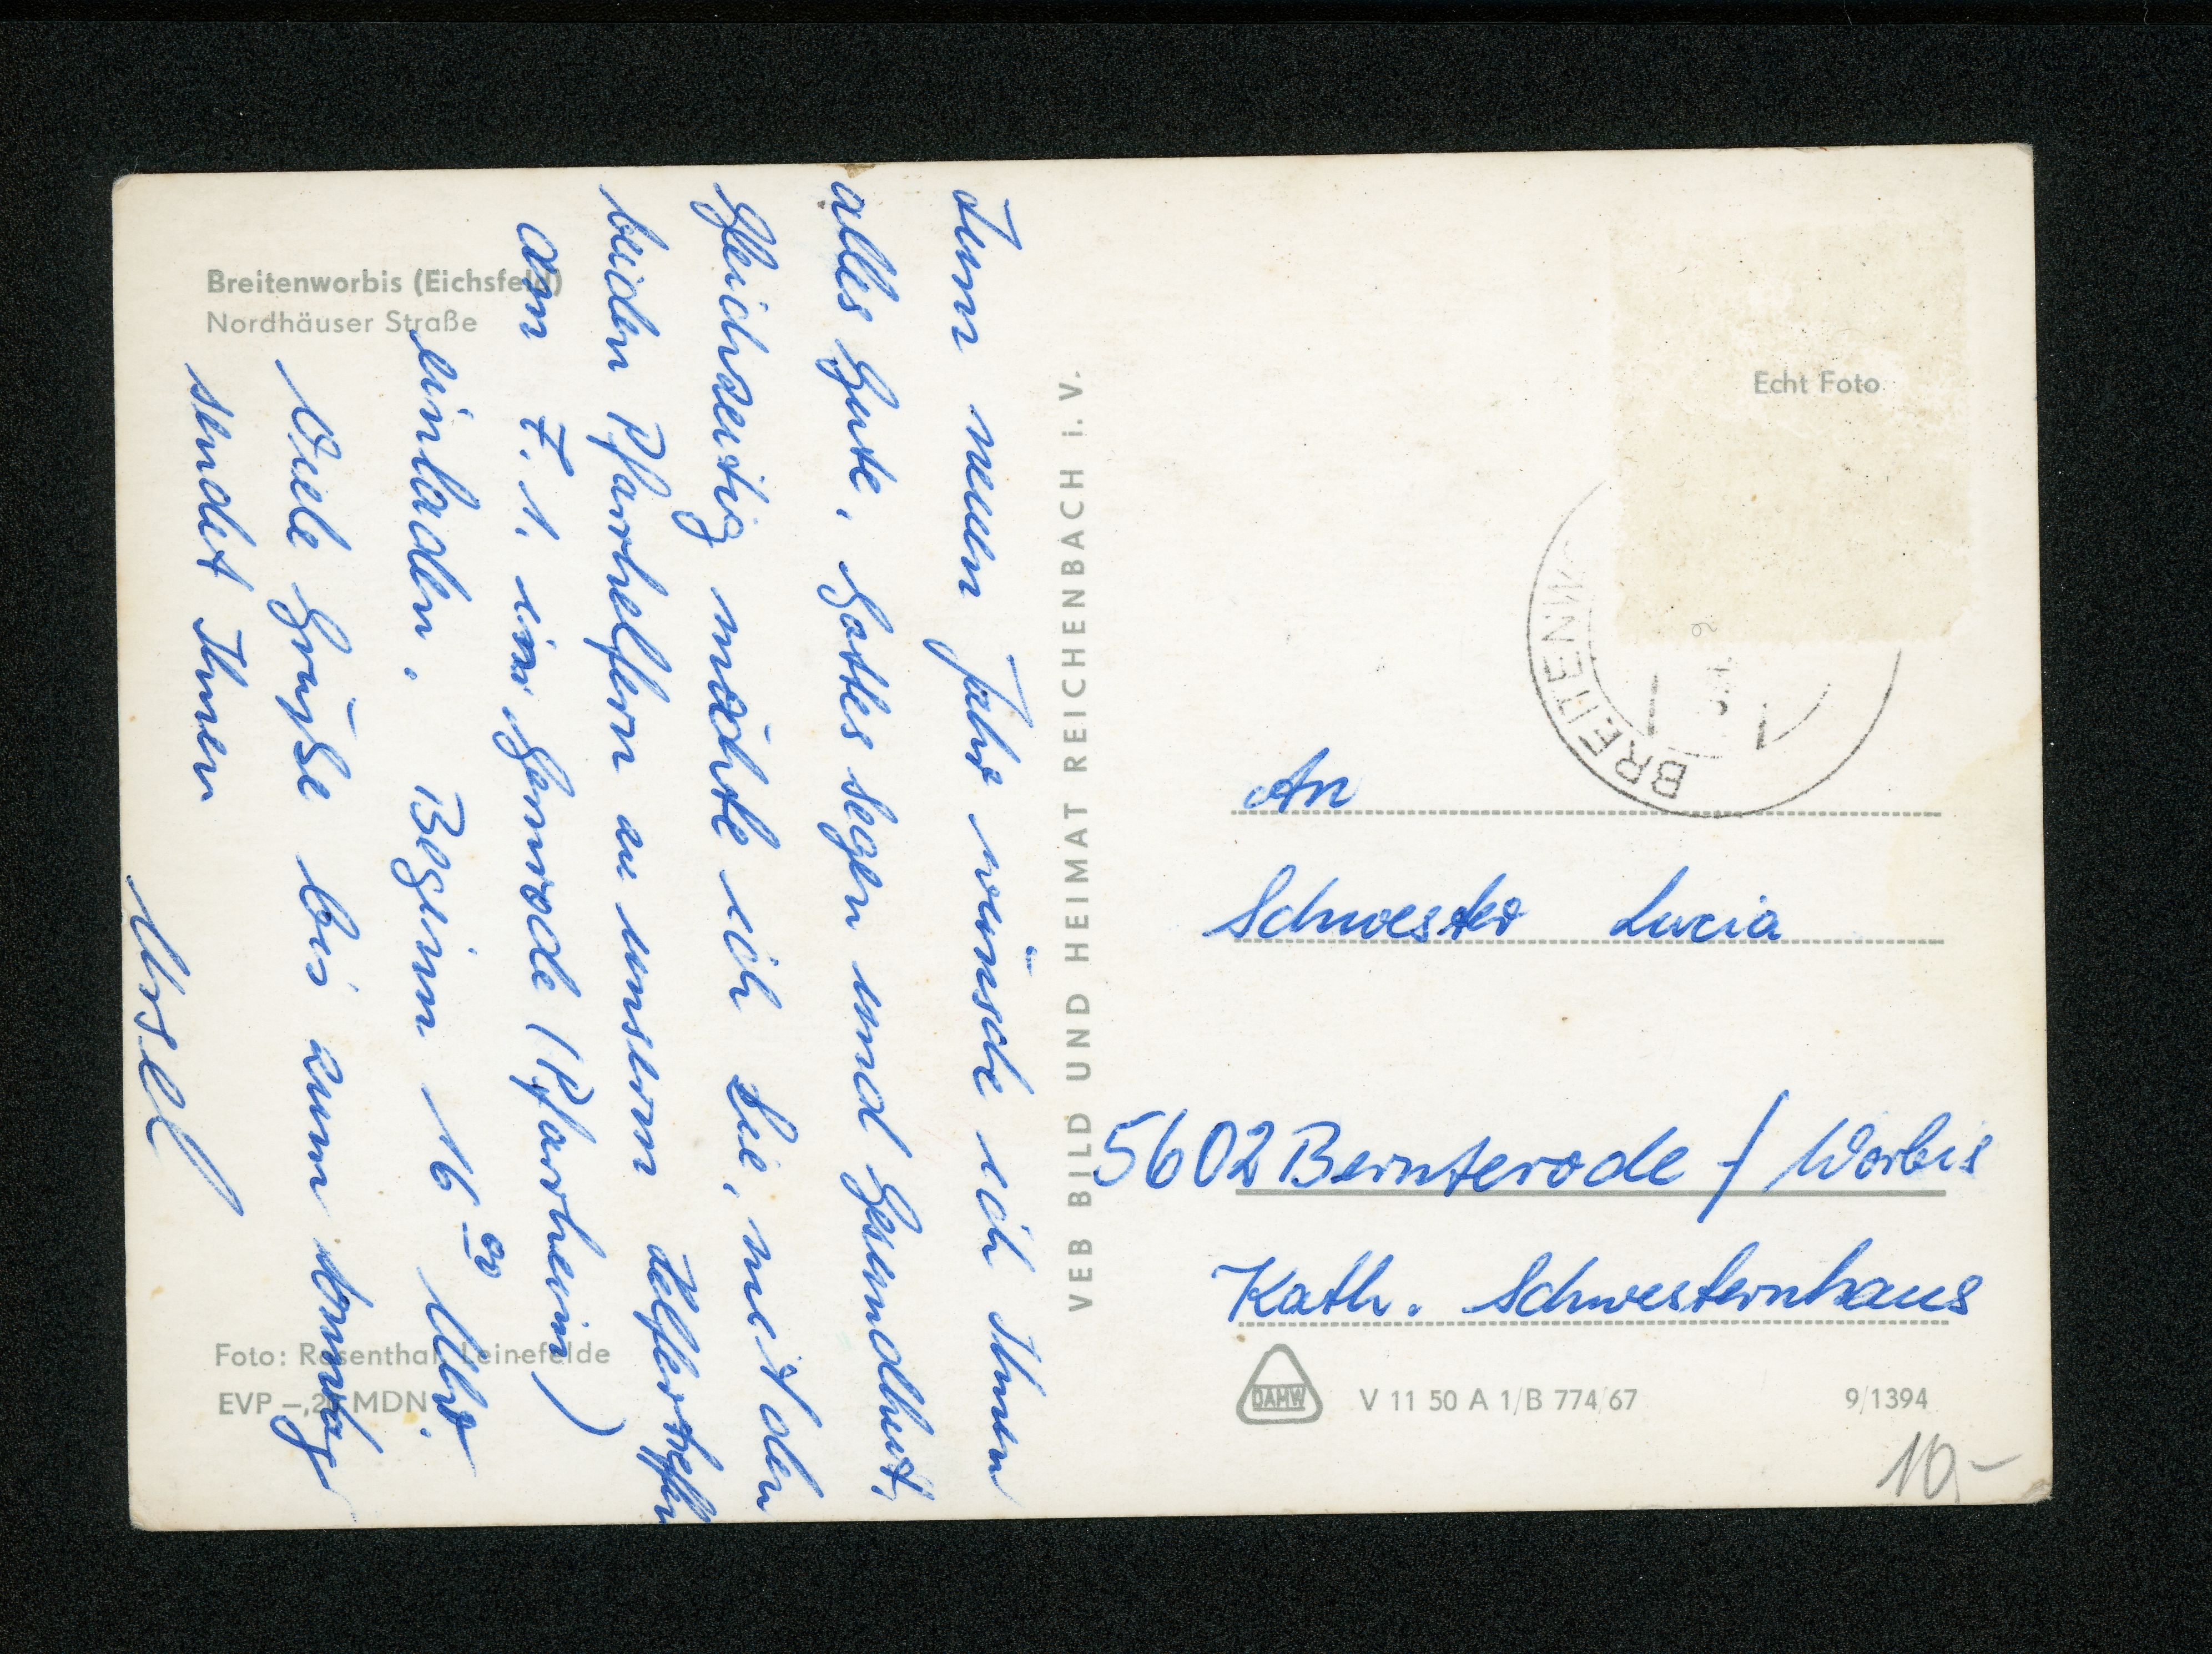 Breitenworbis (Eichsfeld)
Nordhäuser Straße
Zum neuen Jahr wünsche ich Ihnen
alles Gute, Gottes Segen und Gesundheit.
Gleichzeitig möchte ich Sie, mit den
beiden Pfarrhelfern zu unserm Helfertreffen
am 7. 1. im Gernrode (Pfarrheim)
einladen. Beginn 16 00 Uhr.
Viele Grüße bis zum
sendet Ihnen
Ursel
Foto: Rosenthal, Leinefelde
EVP –,20 MDN
VEB BILD UND HEIMAT REICHENBACH i. V.
Echt Foto
BREITENW
An
Schwester Lucia
5602 Bernterode / Worbis
Kath. Schwesternhaus
DAHW
V 11 50 A 1/B 774/67
9/1394
10,-